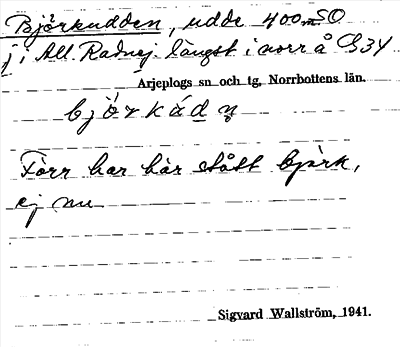 Björkudden, udde 400 m SO
j i All. Radnej. längst i norr å C34
Arjeplogs sn och tg, Norrbottens län.
björkádn
Förr har här stått björk,
ej nu
Sigvard Wallström, 1941.